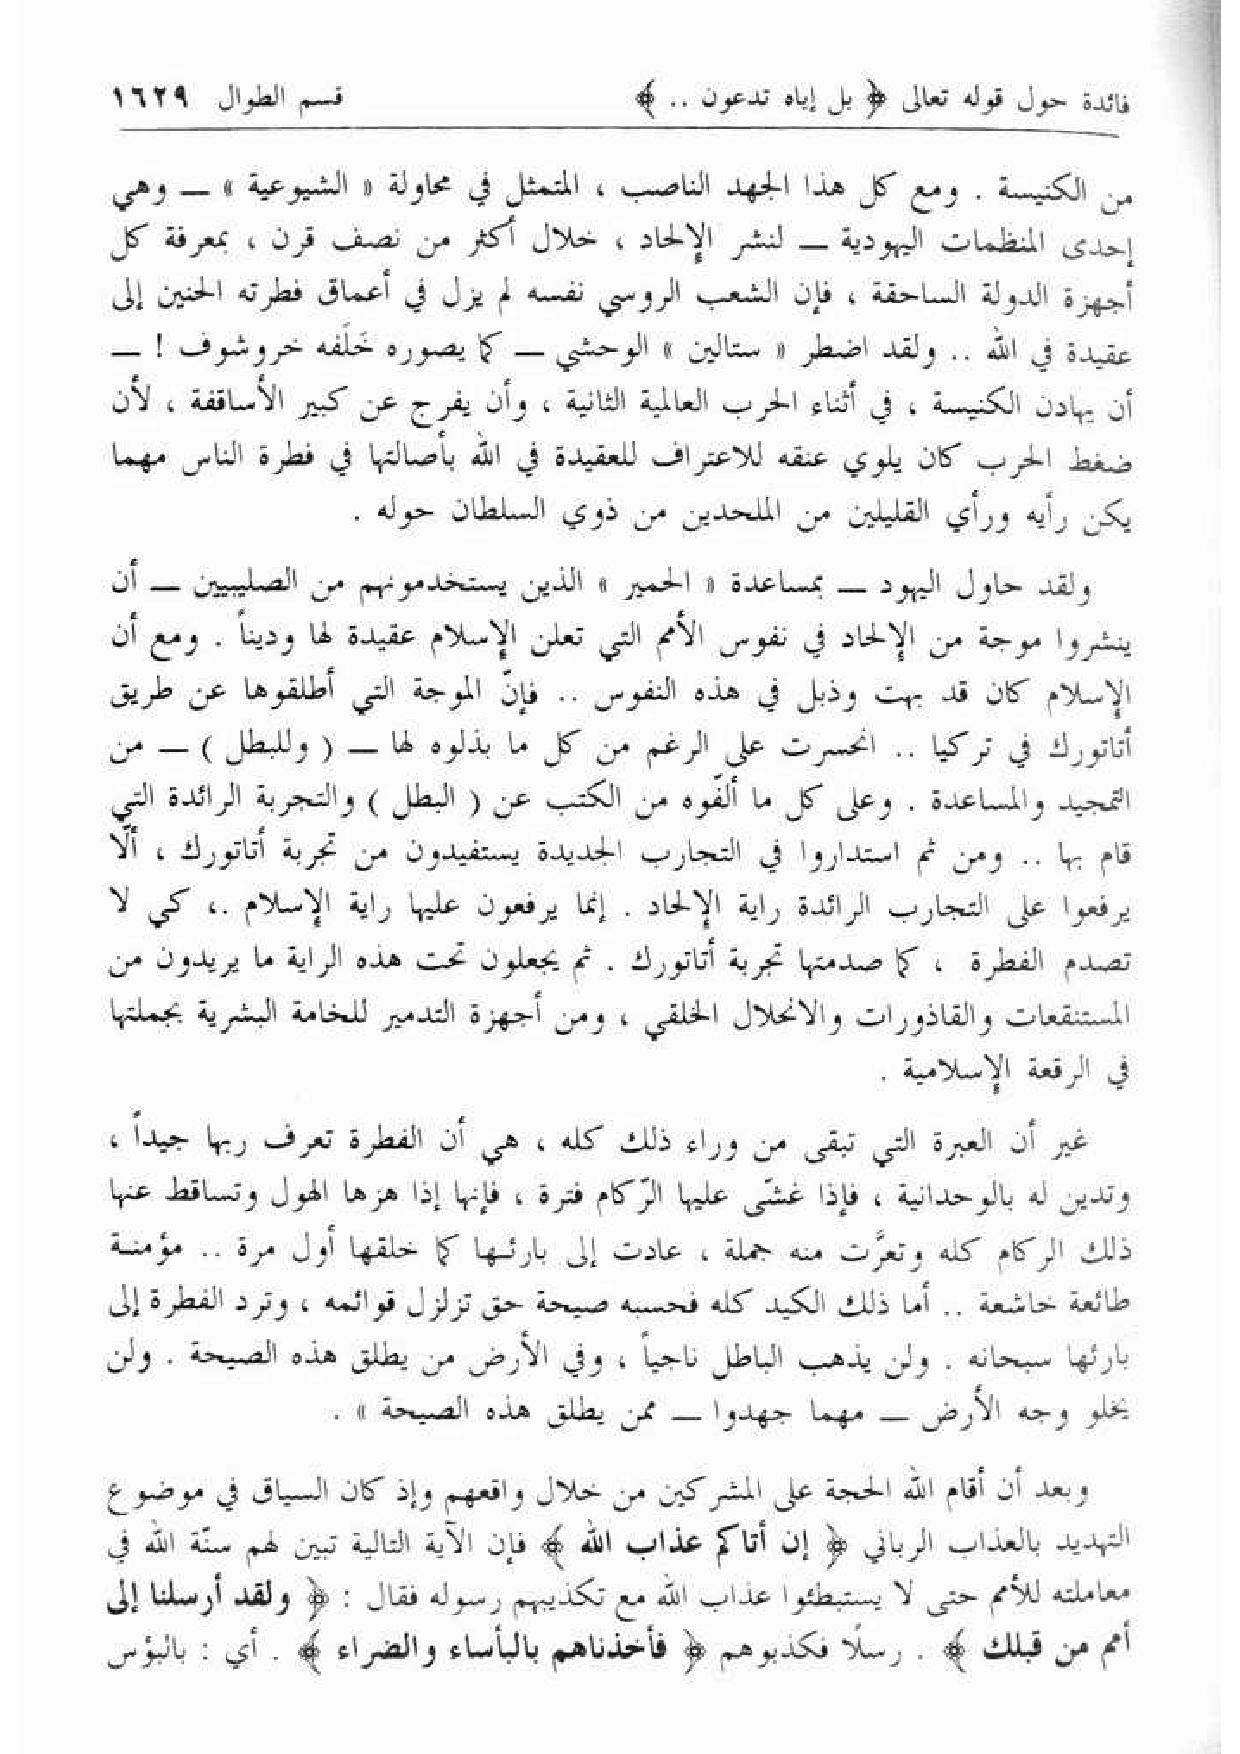 فائدة حول قوله تعالى ﴿ بل إياه تدعون .. ﴾ قسم الطوال ١٦٢٩
من الكنيسة . ومع كل هذا الجهد الناصب ، المتمثل في محاولة « الشيوعية » ــ وهي
إحدى المنظمات اليهودية ــ لنشر الإلحاد ، خلال أكثر من نصف قرن ، بمعرفة كل
أجهزة الدولة الساحقة ، فإن الشعب الروسي نفسه لم يزل في أعماق فطرته الحنين إلى
عقيدة في الله .. ولقد اضطر « ستالين » الوحشي ــ كما يصوره خَلَفه خروشوف ! ــ
أن يهادن الكنيسة ، في أثناء الحرب العالمية الثانية ، وأن يفرج عن كبير الأساقفة ، لأن
ضغط الحرب كان يلوي عنقه للاعتراف للعقيدة في الله بأصالتها في فطرة الناس مهما
يكن رأيه ورأي القليلين من الملحدين من ذوي السلطان حوله .
ولقد حاول اليهود ــ بمساعدة « الحمير » الذين يستخدمونهم من الصليبيين ــ أن
ينشروا موجة من الإلحاد في نفوس الأمم التي تعلن الإسلام عقيدة لها وديناً . ومع أن
الإسلام كان قد بهت وذبل في هذه النفوس .. فإنّ الموجة التي أطلقوها عن طريق
أتاتورك في تركيا .. انحسرت على الرغم من كل ما بذلوه لها ــ ( وللبطل ) ــ من
التمجيد والمساعدة . وعلى كل ما ألّفوه من الكتب عن ( البطل ) والتجربة الرائدة التي
قام بها .. ومن ثم استداروا في التجارب الجديدة يستفيدون من تجربة أتاتورك ، ألّا
يرفعوا على التجارب الرائدة راية الإلحاد . إنما يرفعون عليها راية الإسلام .، كي لا
تصدم الفطرة ، كما صدمتها تجربة أتاتورك . ثم يجعلون تحت هذه الراية ما يريدون من
المستنقعات والقاذورات والانحلال الخلقي ، ومن أجهزة التدمير للخامة البشرية بجملتها
في الرقعة الإسلامية .
غير أن العبرة التي تبقى من وراء ذلك كله ، هي أن الفطرة تعرف ربها جيداً ،
وتدين له بالوحدانية ، فإذا غشّى عليها الرّكام فترة ، فإنها إذا هزها الهول وتساقط عنها
ذلك الركام كله وتعرَّت منه جملة ، عادت إلى بارئها كما خلقها أول مرة .. مؤمنة
طائعة خاشعة .. أما ذلك الكيد كله فحسبه صيحة حق تزلزل قوائمه ، وترد الفطرة إلى
بارئها سبحانه . ولن يذهب الباطل ناجياً ، وفي الأرض من يطلق هذه الصيحة . ولن
يخلو وجه الأرض ــ مهما جهدوا ــ ممن يطلق هذه الصيحة » .
وبعد أن أقام الله الحجة على المشركين من خلال واقعهم وإذ كان السياق في موضوع
التهديد بالعذاب الرباني ﴿ إن أتاكم عذاب الله ﴾ فإن الآية التالية تبين لهم سنّة الله في
معاملته للأمم حتى لا يستبطئوا عذاب الله مع تكذيبهم رسوله فقال : ﴿ ولقد أرسلنا إلى
أمم من قبلك ﴾ . رسلًا فكذبوهم ﴿ فأخذناهم بالبأساء والضراء ﴾ . أي : بالبؤس